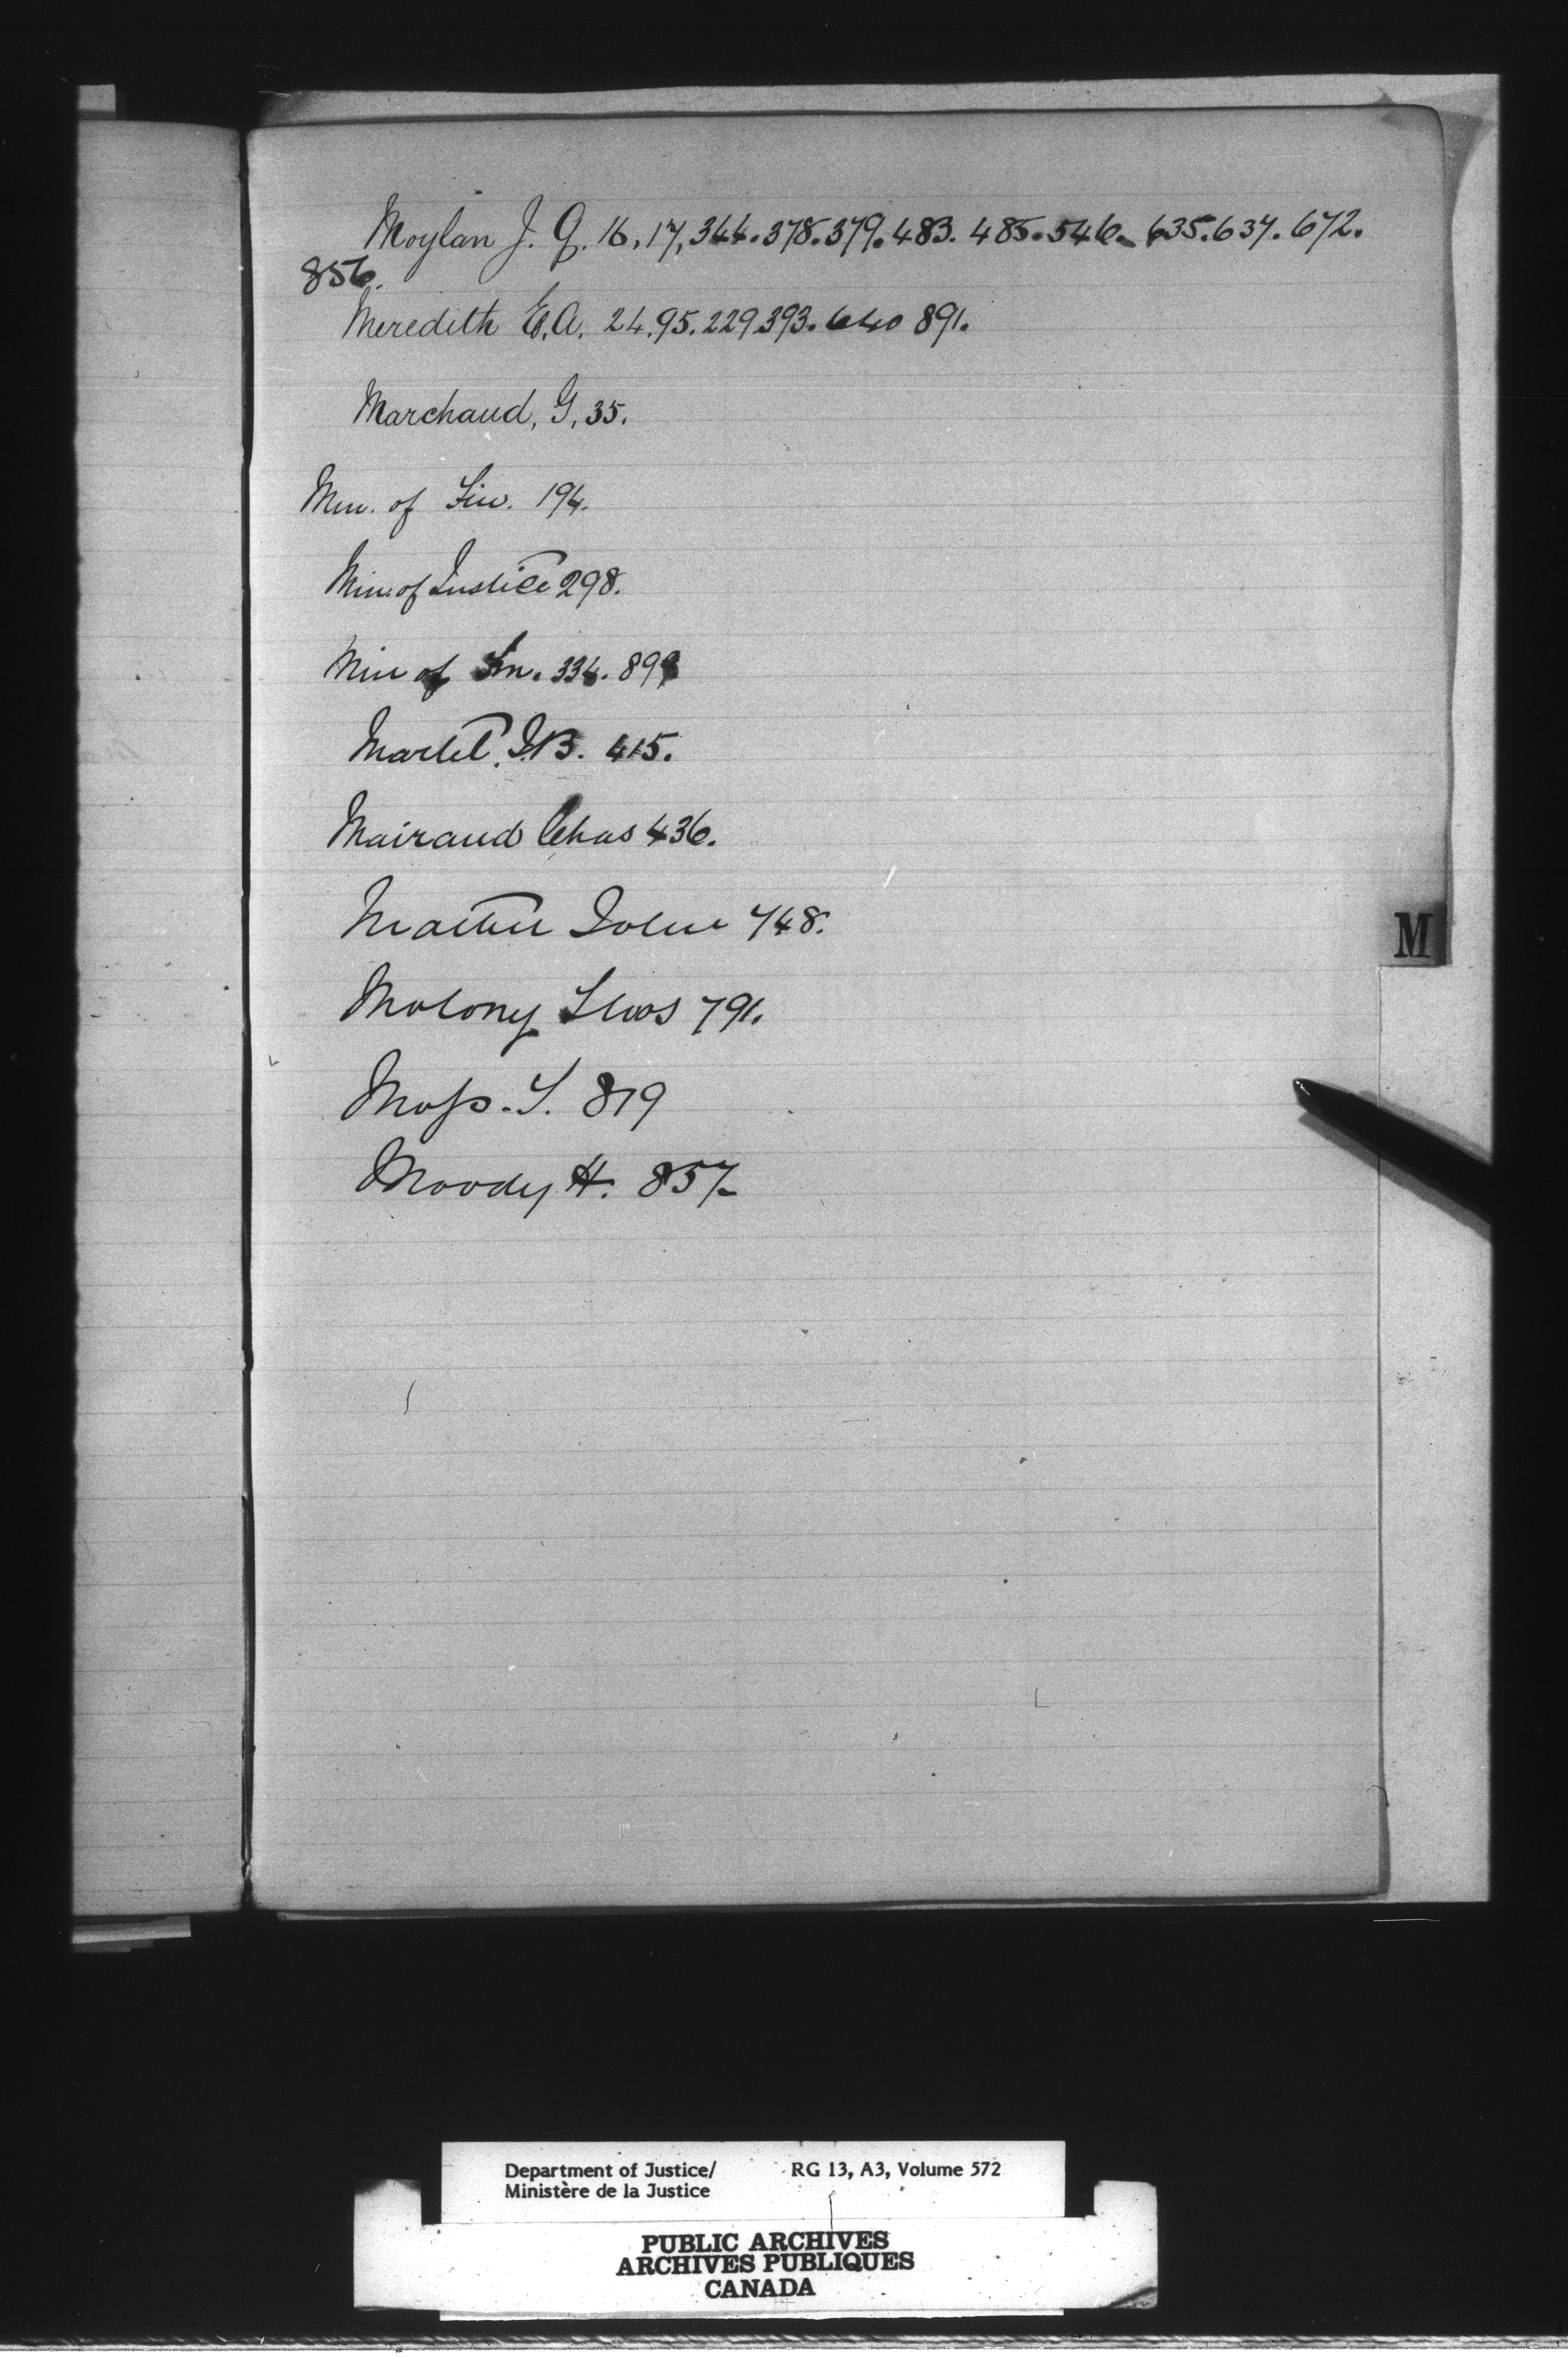 Moylan J. G. 16, 17, 344. 378. 379. 483. 485. 546. 635. 637. 672.
856.
Meredith E. A. 24. 95. 229. 393. 640 891.
Marchand, G, 35.
Min. of Fin. 194.
Min. of Justice 298.
Min of Fin. 334. 899
Martel, J.B. 415.
Mairand Chas 436.
John 748.
M
Molony Thos 791.
Moss. T. 819
Moody H. 857.
Department of Justice/ RG 13, A3, Volume 572
Ministère de la Justice
PUBLIC ARCHIVES
ARCHIVES PUBLIQUES
CANADA